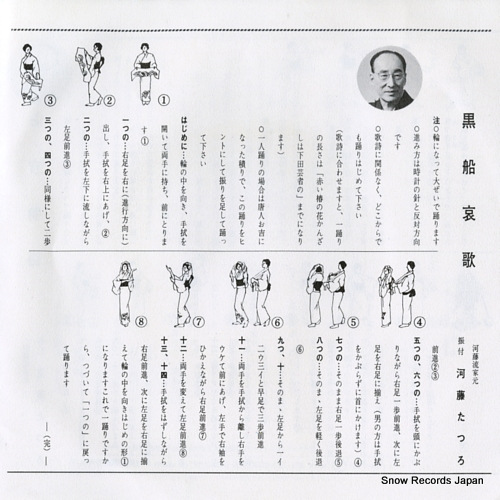 黒船哀歌
河藤流家元
振付 河藤たつろ
注○輪になって大ぜいで踊ります
○進み方は時計の針と反対方向
です
○歌詩に関係なく、どこからで
も踊りはじめて下さい
(歌詩に合わせますと、一踊り
の長さは「赤い椿の花かんざ
しは下田芸者の」までになり
ます)
○一人踊りの場合は唐人お吉に
なった積りで、この踊りをヒ
ントにして振りを足して踊っ
て下さい
はじめに…輪の中を向き、手拭を
開いて両手に持ち、前にとりま
す①
一つの…右足を右に(進行方向に)
出し、手拭を右上にあげ、②
二つの…手拭を左下に流しながら
左足前進③
三つの、四つの…同様にして二歩
①
②
③
前進②③
五つの、六つの…手拭を頭にかぶ
りながら右足一歩前進、次に左
足を右足に揃え(男の方は手拭
をかぶらずに首にかけます)④
七つの…そのまま右足一歩後退⑤
八つの…そのま、左足を軽く後退
⑥
九つ、十…そのま、左足から一イ
二ウ三イと早足で三歩前進
十一…両手を前に手拭から離し右手を
ウケて前にあげ、左手で右袖を
ひかえながら右足前進⑦
十二…両手を変えて左足前進⑧
十三、十四…手拭をはずしながら
右足前進、次に左足を右足に揃
えて輪の中を向きはじめの形①
になりますこれで一踊りですか
ら、つづいて「一つの」に戻っ
て踊ります
―(完)―
④
⑤
⑥
⑦
⑧
Snow Records Japan